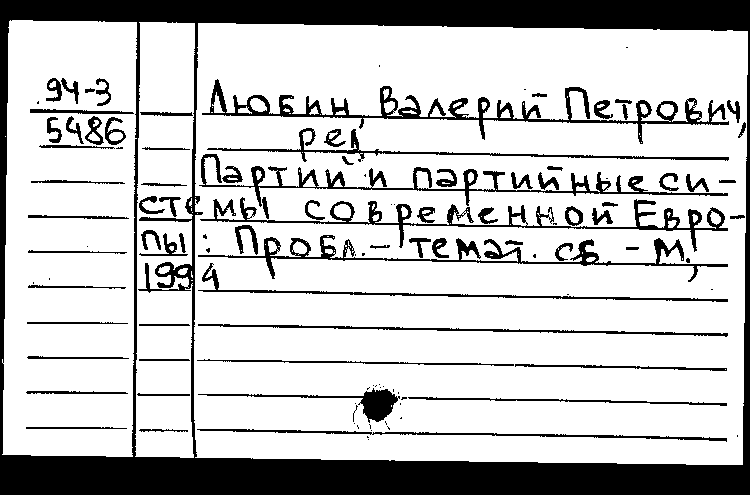 94-3
5486
Любин, Валерий Петрович,
ред.
Партии и партийные си-
стемы современной Евро-
пы : Пробл.-темат. сб. - М.,
1994